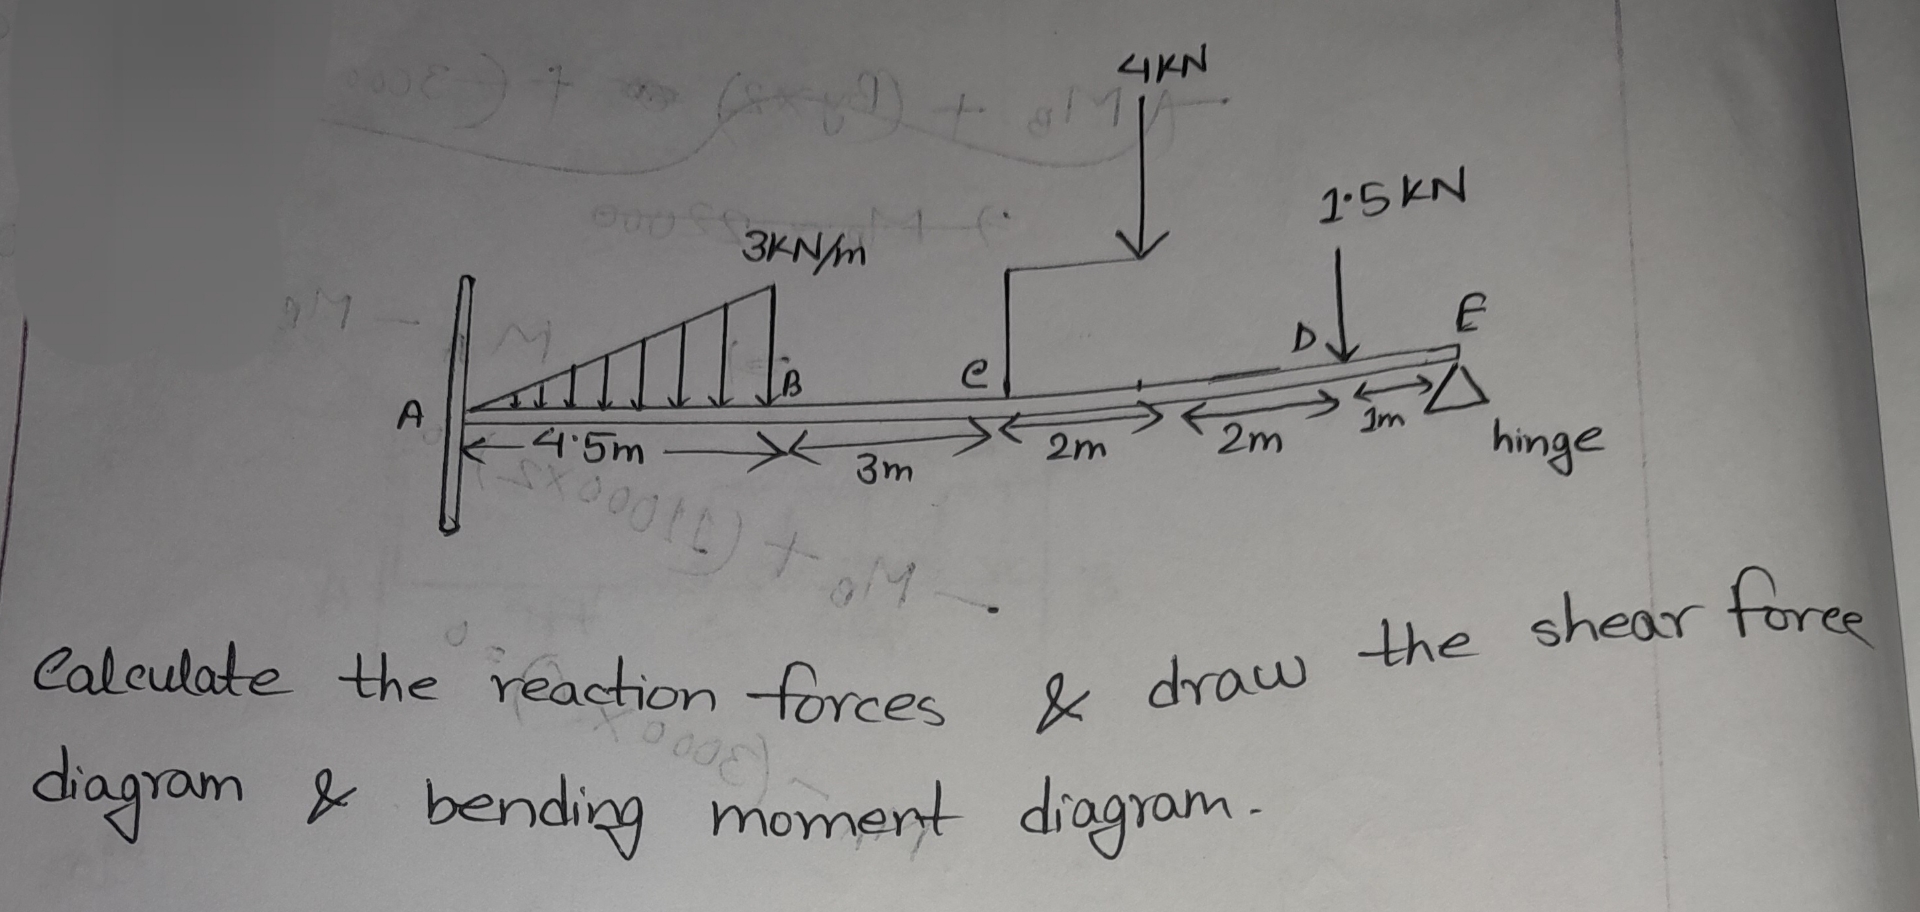 4KN
1.5KN
3KN/m
A
B
C
D
E
4.5m
3m
2m
2m
1m
hinge
Calculate the reaction forces & draw the shear force
diagram & bending moment diagram.